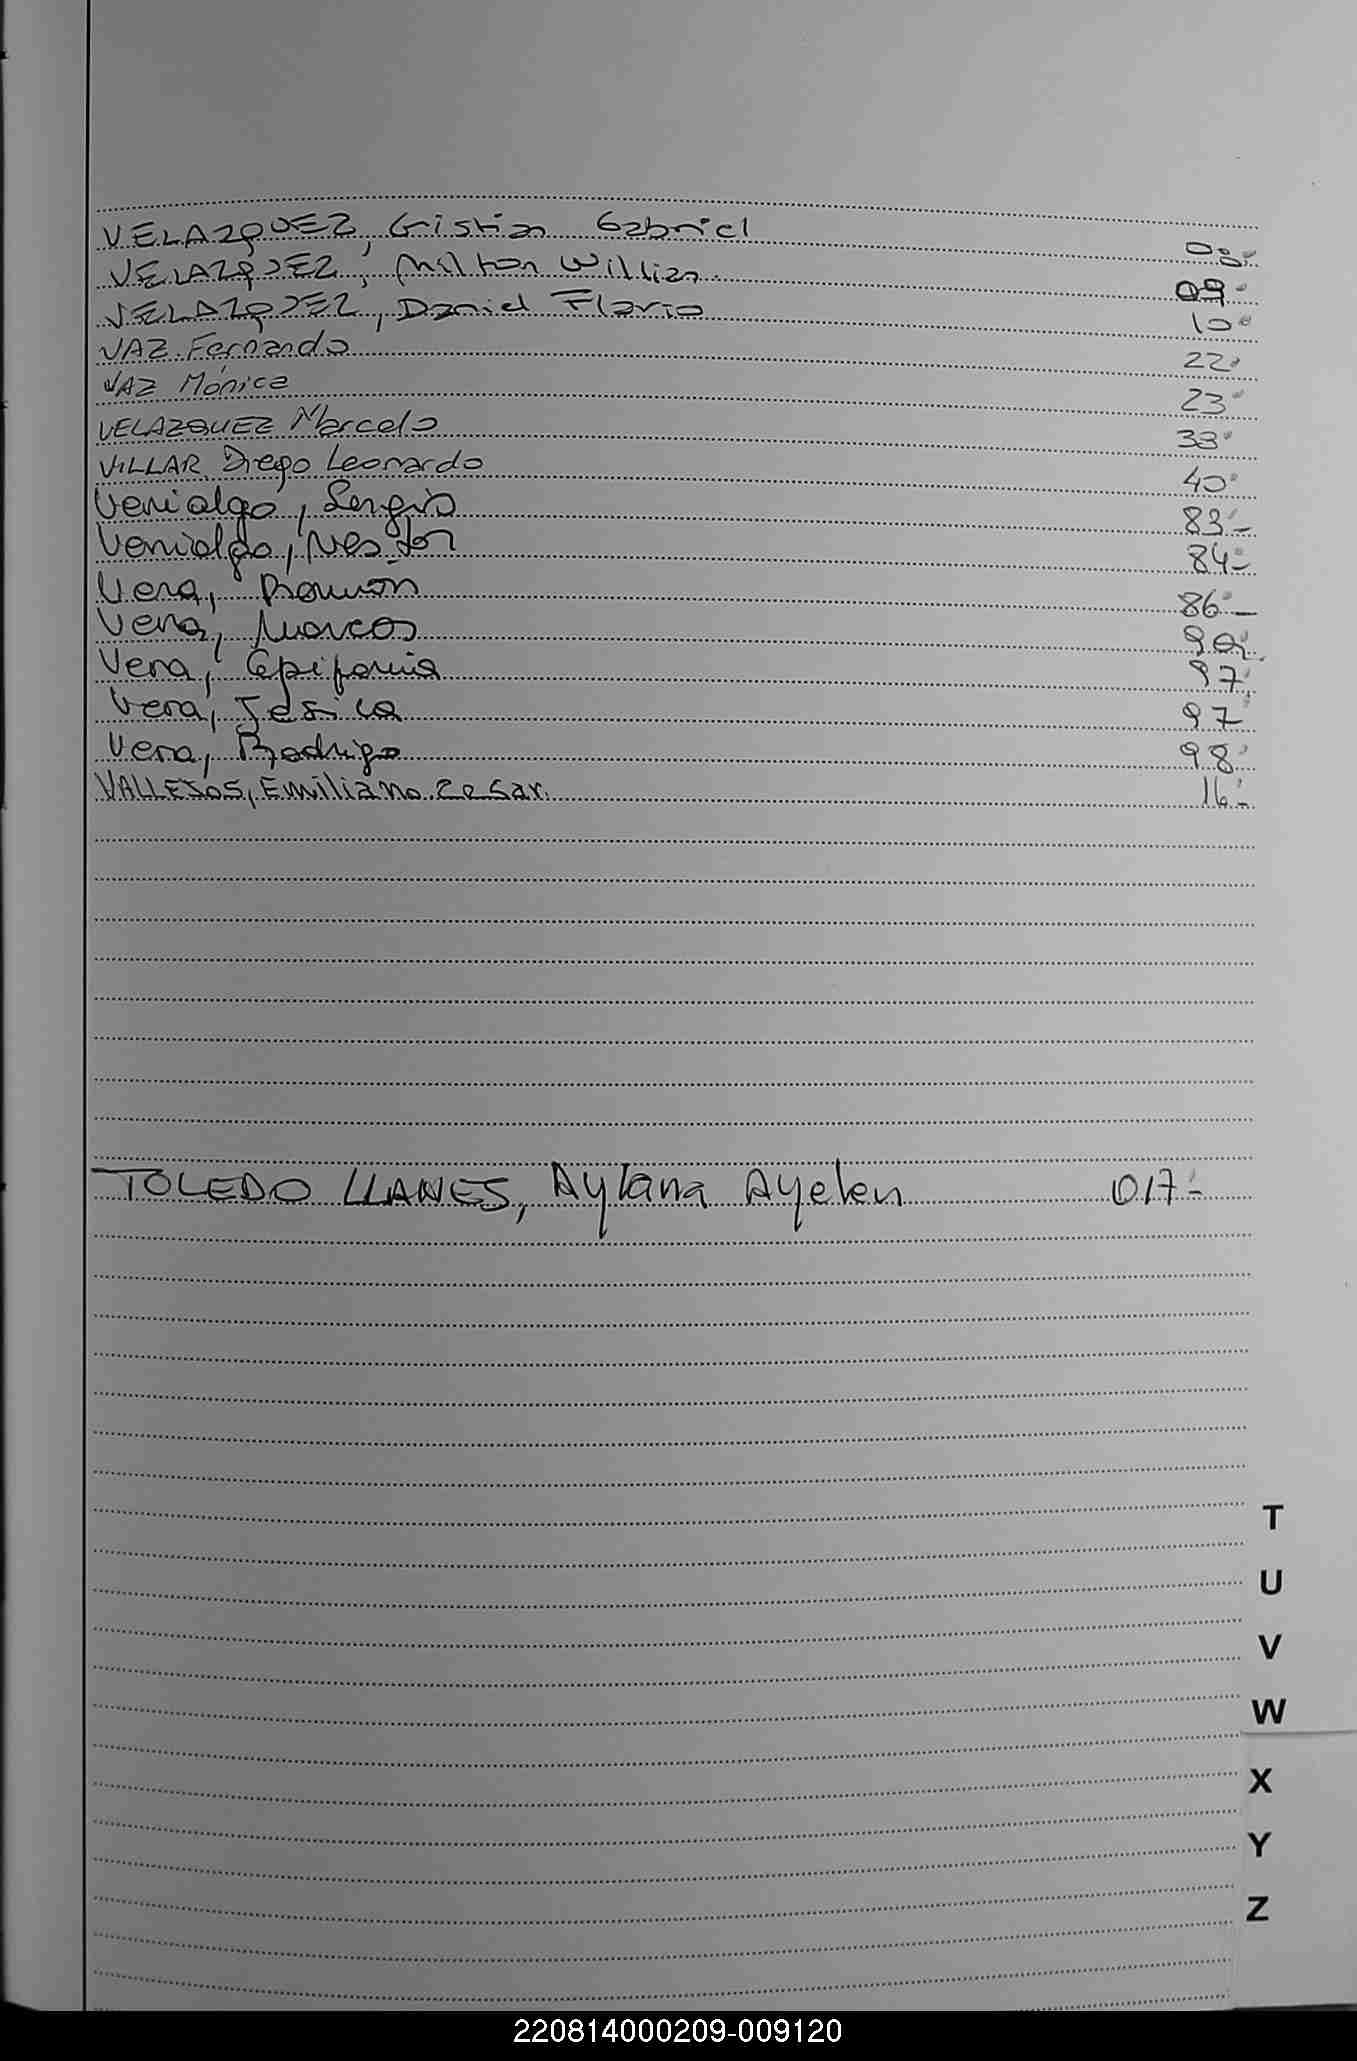 VELAZQUEZ, Cristian Gabriel 08.-
VELAZQUEZ, Milton Willian. 09.-
VELAZQUEZ, Daniel Flavio 10.-
VAZ. Fernando 22.
VAZ Mónica 23.
VELAZQUEZ Marcelo 38.
VILLAR, Diego Leonardo 40.
Venialgo, Sergio 83.-
Venialgo, Nestor 84.-
Vera, Ramón 86.-
Vera, Marcos
Vera, Epifania 97.
Vera, Jesica 97
Vera, Rodrigo 98.
VALLEJOS, Emiliano Cesar. 16.-
TOLEDO LLANES, Aylana Ayelen 017.-
T
U
V
W
X
Y
Z
220814000209-009120